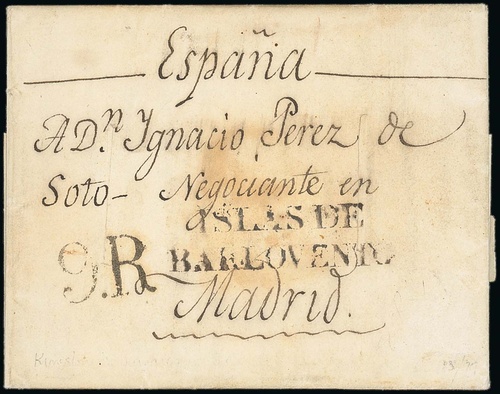 España
A Dn. Ygnacio Perez de
Soto - Negociante en
ISLAS DE
BARLOVENTO
9.R
Madrid.